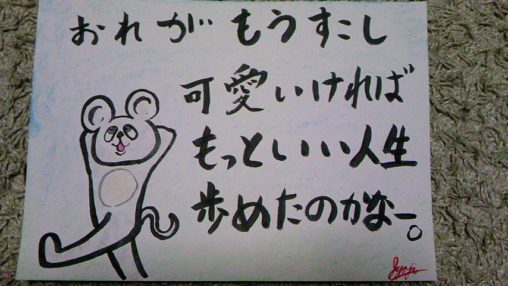 おれがもうすこし
可愛いければ
もっといい人生
歩めたのかなー。